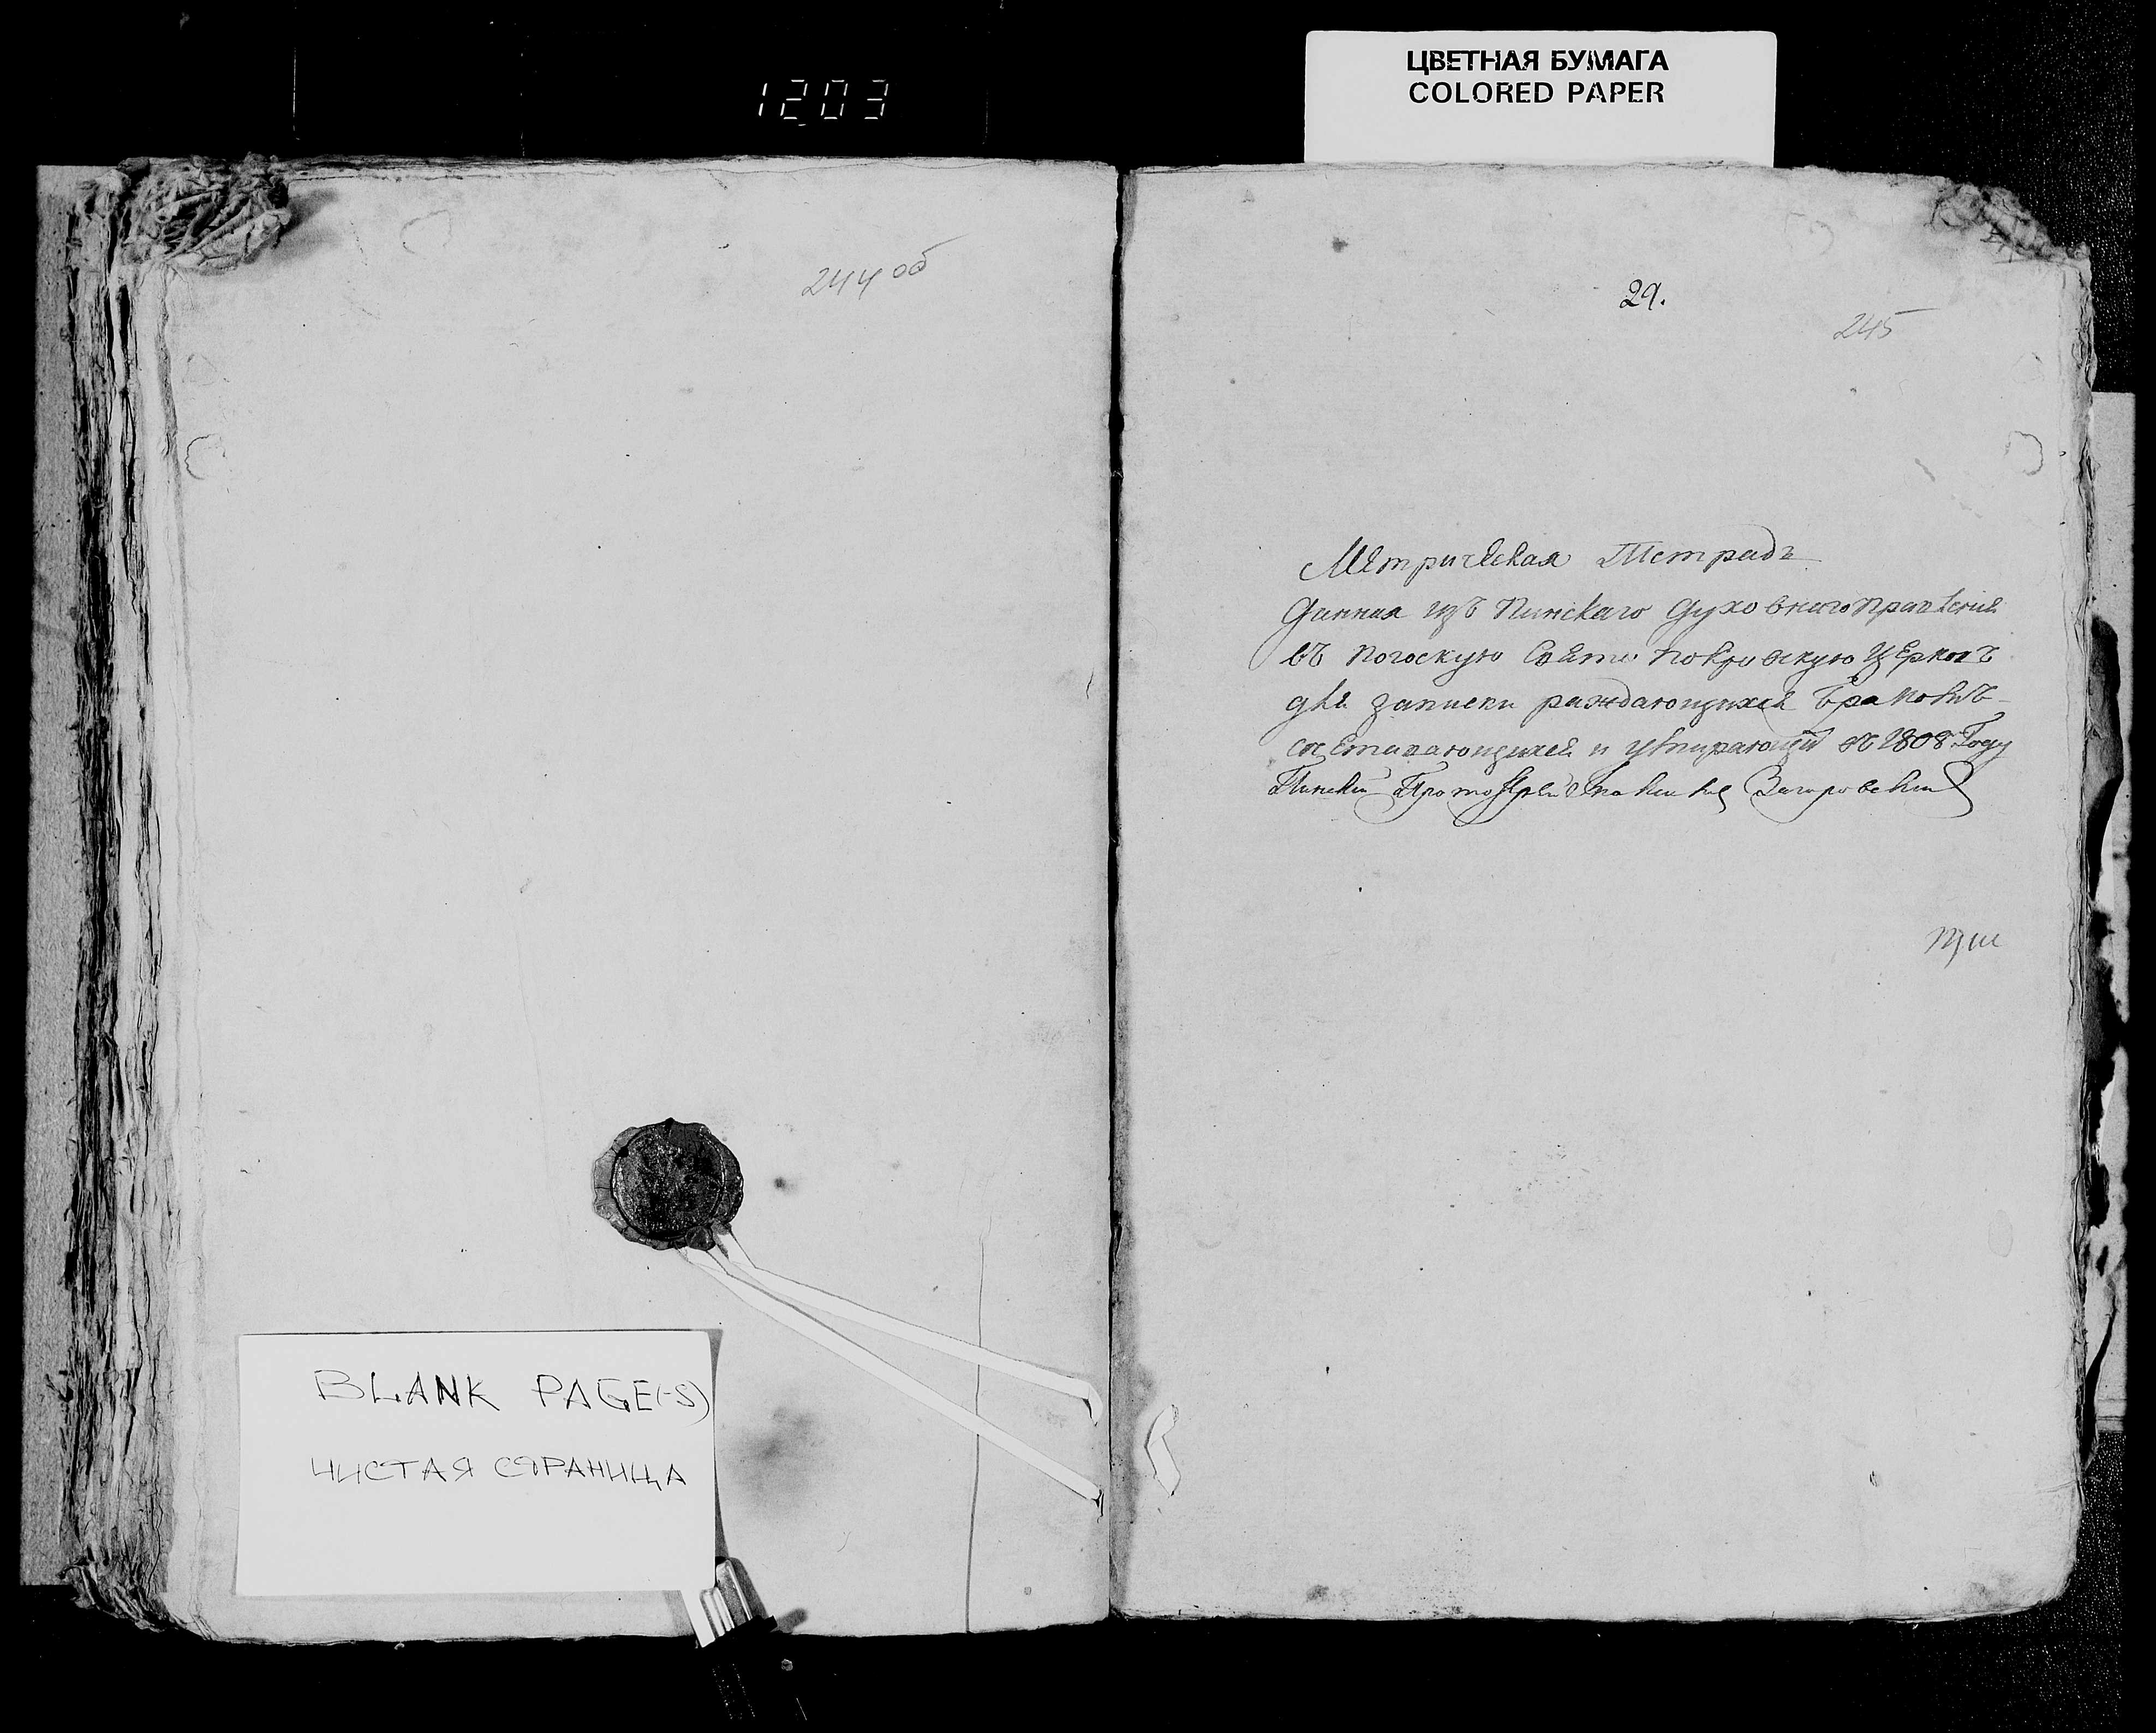 1203
ЦВЕТНАЯ БУМАГА
COLORED PAPER
244 об
29.
245
Метрическая Тетрадь
Данная изъ Пинскаго Духовнаго Правления
въ Погоскую Свято Покровскую Церковъ
для записки раждающихся бракомъ
сочетавающихся и умирающи въ 1808 Году
Пинский Протоиерей
BLANK PAGE(-S)
ЧИСТАЯ СТРАНИЦА